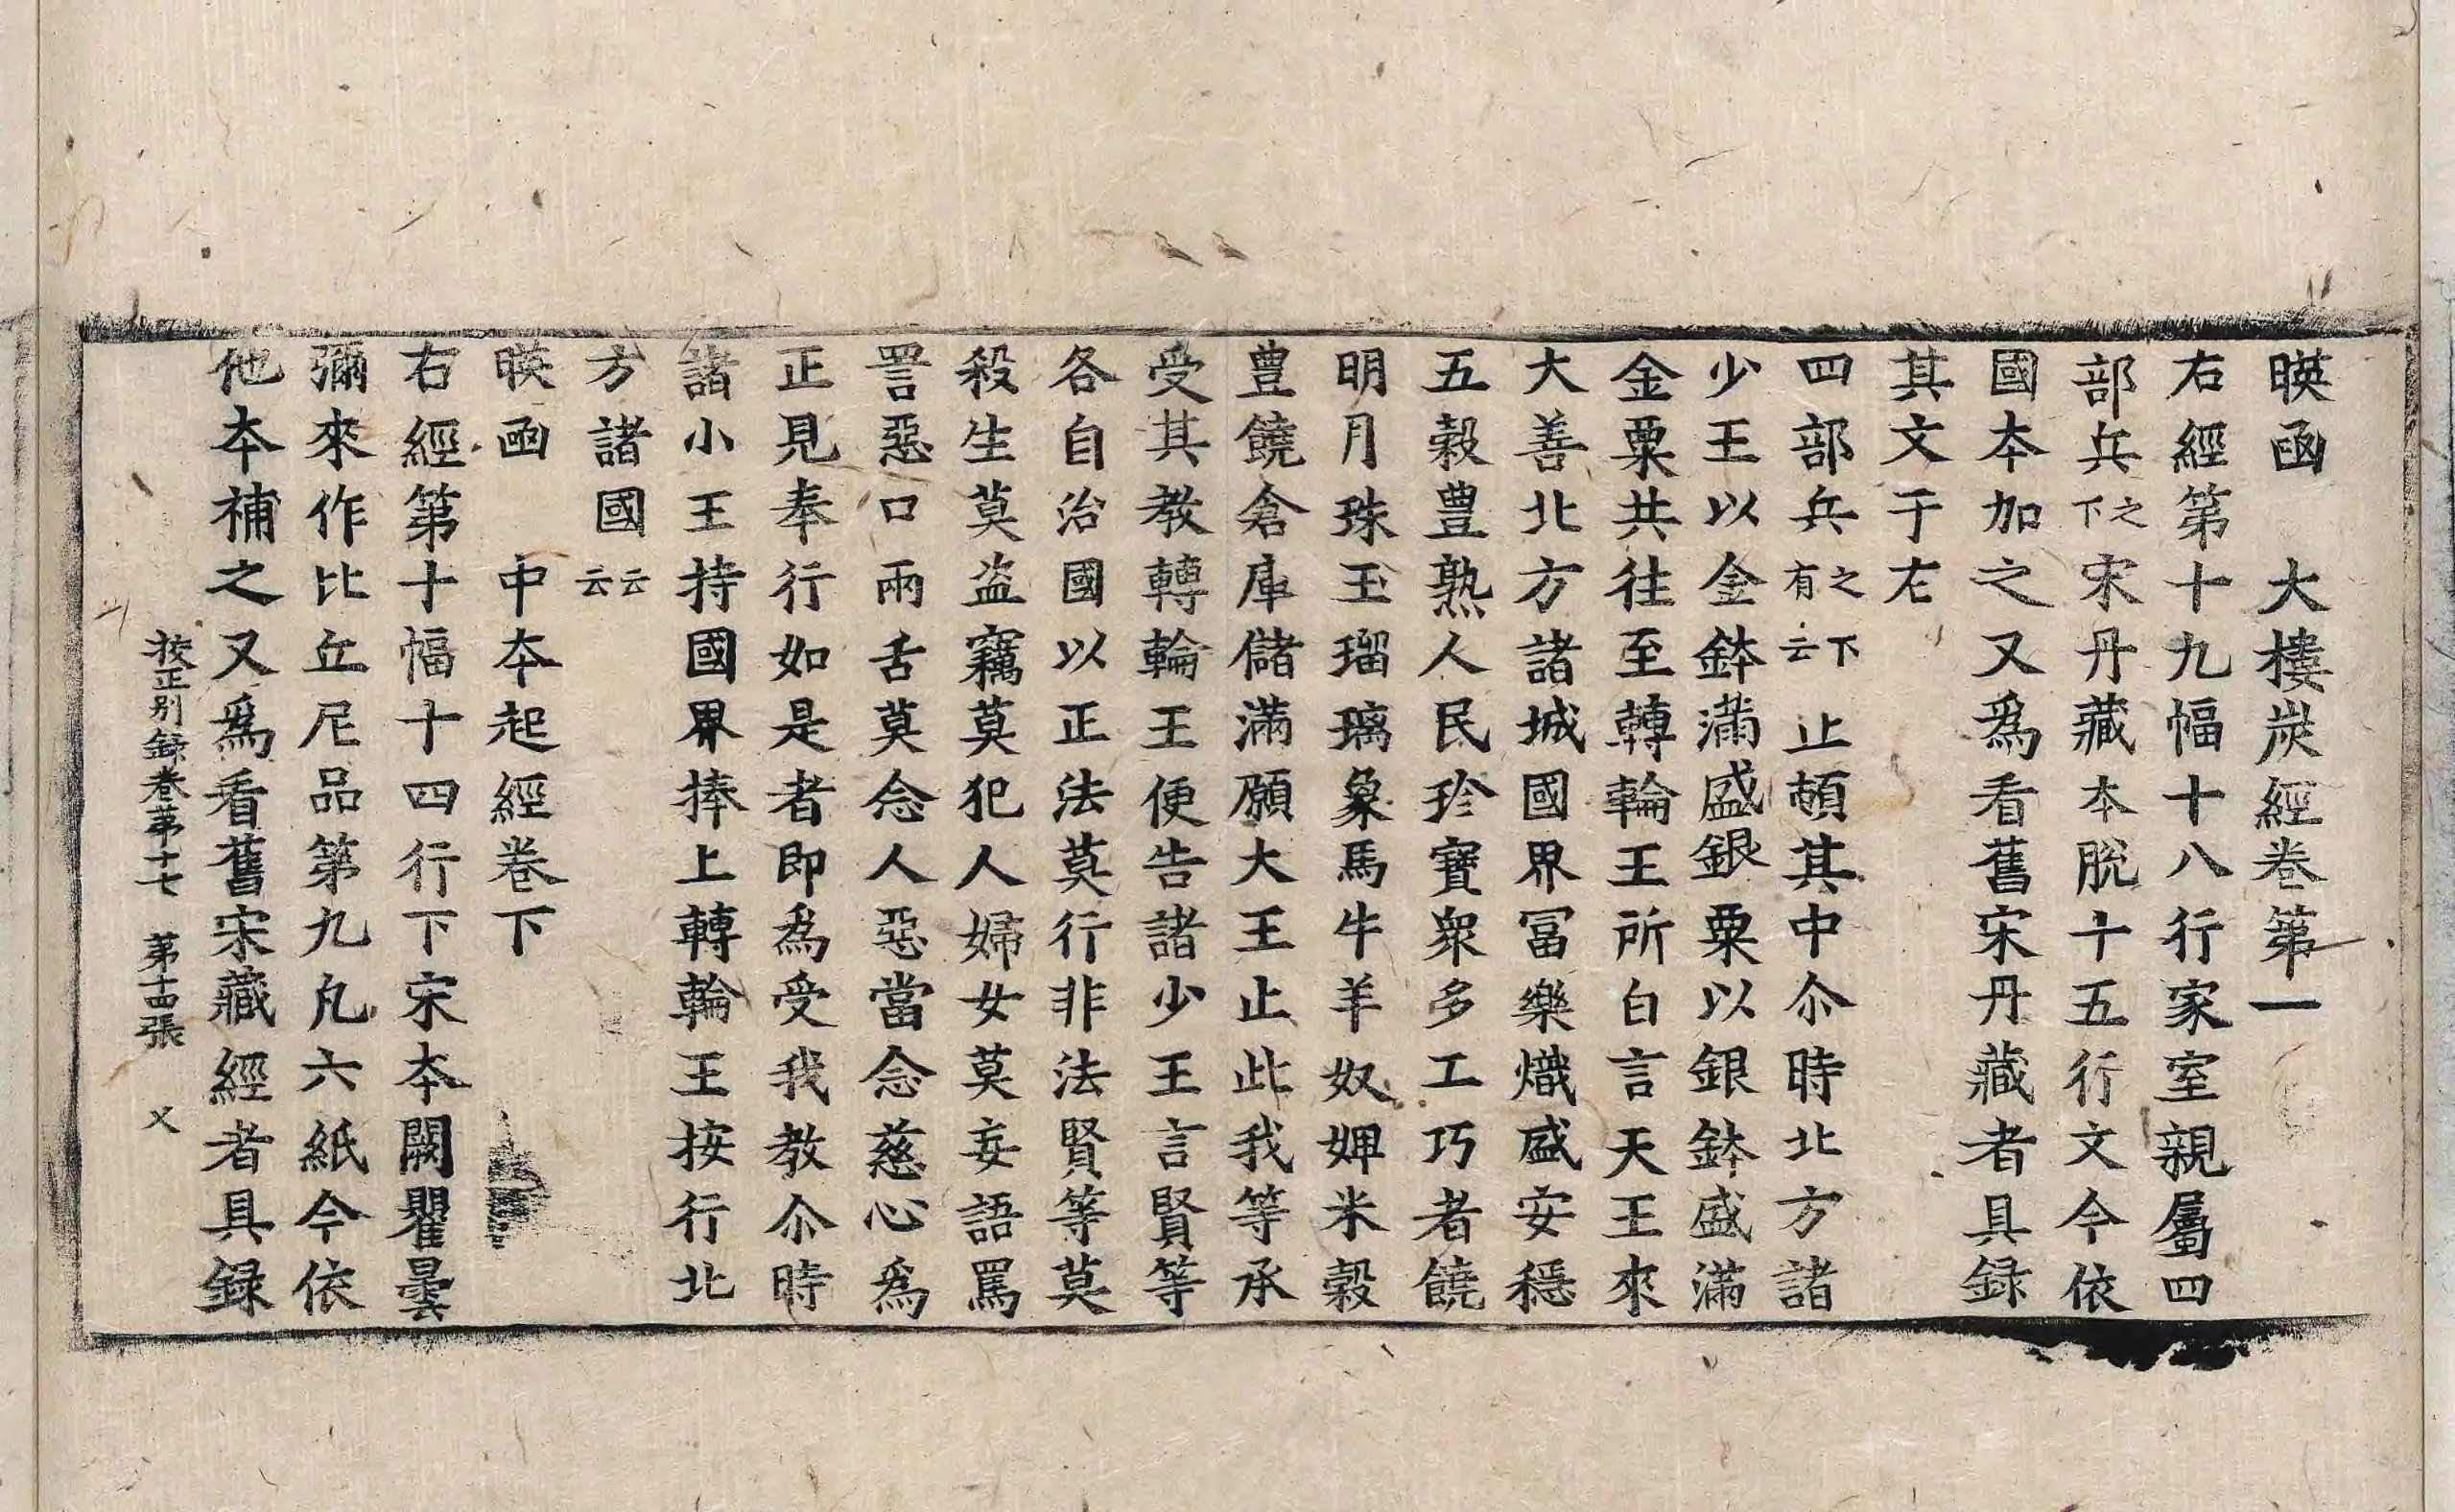 暎函 大樓炭經卷第一
右經第十九幅十八行家室親屬四
部兵之下宋丹藏本脫十五行文今依
國本加之又爲看舊宋丹藏者具錄
其文于左
四部兵之下有云止頓其中尒時北方諸
少王以金鉢滿盛銀粟以銀鉢盛滿
金粟共往至轉輪王所白言天王來
大善北方諸城國界冨樂熾盛安穩
五穀豊熟人民珎寶衆多工巧者饒
明月珠玉瑠璃象馬牛羊奴婢米穀
豊饒倉庫儲滿願大王止此我等承
受其教轉輪王便告諸少王言賢等
各自治國以正法莫行非法賢等莫
殺生莫盜竊莫犯人婦女莫妄語罵
詈惡口兩舌莫念人惡當念慈心爲
正見奉行如是者即爲受我教尒時
諸小王持國界捧上轉輪王按行北
方諸國云云
暎函 中本起經卷下
右經第十幅十四行下宋本闕瞿曇
彌來作比丘尼品第九凡六紙今依
他本補之又爲看舊宋藏經者具録
挍正別録卷苐十七 苐十四張 乂